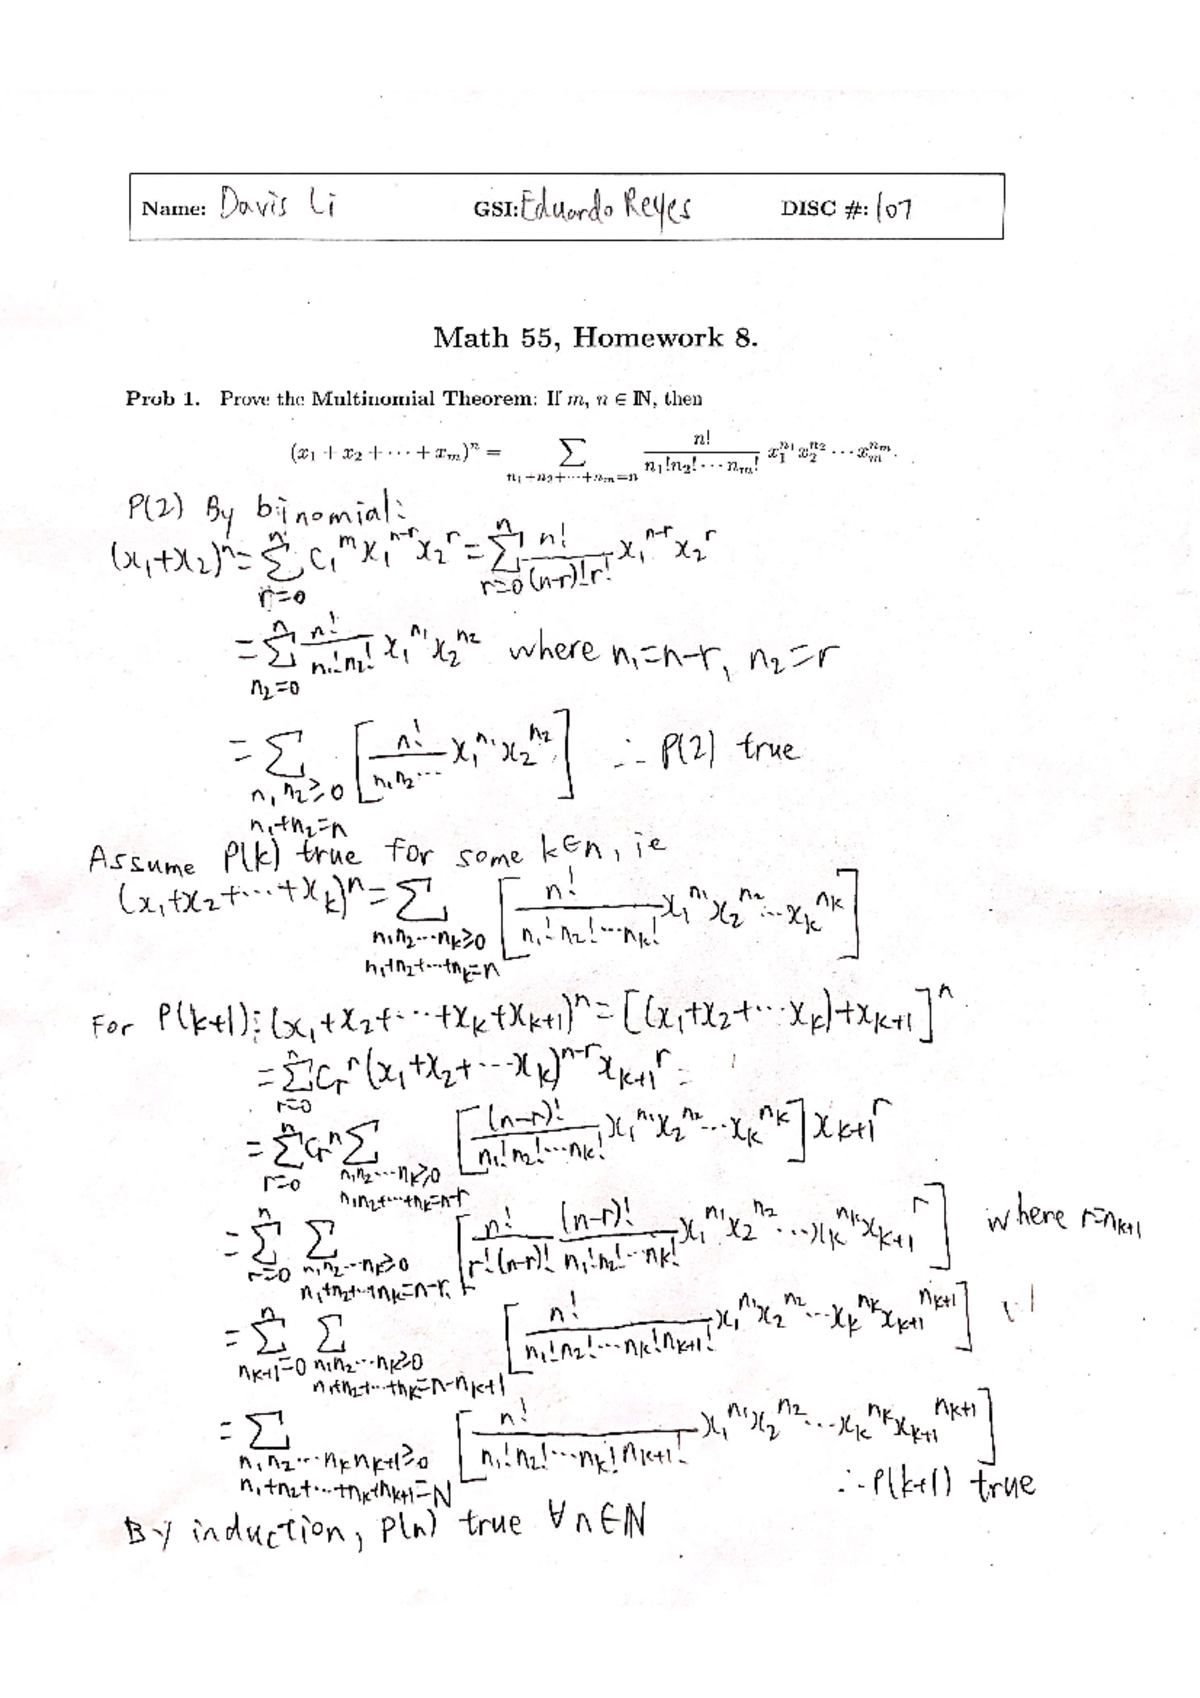 Name: Davis Li GSI: Eduardo Reyes DISC #: 107
Math 55, Homework 8.
Prob 1. Prove the Multinomial Theorem: If m, n ∈ ℕ, then
(x₁ + x₂ + ⋯ + xₘ)ⁿ = ∑_{n₁+n₂+⋯+nₘ=n} n!/(n₁!n₂!⋯nₘ!) x₁^{n₁} x₂^{n₂} ⋯ xₘ^{nₘ}.
P(2) By binomial:
(x₁+x₂)ⁿ = ∑_{r=0}^{n} C₁^m x₁^{n-r} x₂^r = ∑_{r=0}^{n} n!/((n-r)!r!) x₁^{n-r} x₂^r
= ∑_{n₂=0}^{n} n!/(n₁!n₂!) x₁^{n₁} x₂^{n₂} where n₁=n-r, n₂=r
= ∑_{n₁n₂≥0, n₁+n₂=n} [n!/(n₁n₂⋯) x₁^{n₁} x₂^{n₂}] ∴ P(2) true
Assume P(k) true for some k∈n, ie
(x₁+x₂+⋯+x_k)ⁿ = ∑_{n₁n₂⋯n_k≥0, n₁+n₂+⋯+n_k=n} [n!/(n₁!n₂!⋯n_k!) x₁^{n₁} x₂^{n₂}⋯x_k^{n_k}]
For P(k+1): (x₁+x₂+⋯+x_k+x_{k+1})ⁿ = [(x₁+x₂+⋯x_k)+x_{k+1}]ⁿ
= ∑_{r=0}^{n} C_r^n (x₁+x₂+⋯x_k)^{n-r} x_{k+1}^r =
= ∑_{r=0}^{n} C_r^n ∑_{n₁n₂⋯n_k≥0, n₁n₂+⋯+n_k=n-r} [(n-r)!/(n₁!n₂!⋯n_k!) x₁^{n₁} x₂^{n₂}⋯x_k^{n_k}] x_{k+1}^r
= ∑_{r=0}^{n} ∑_{n₁n₂⋯n_k≥0, n₁+n₂+⋯+n_k=n-r} [n!/(r!(n-r)!) (n-r)!/(n₁!n₂!⋯n_k!) x₁^{n₁} x₂^{n₂}⋯x_k^{n_k} x_{k+1}^r] where r=n_{k+1}
= ∑_{n_{k+1}=0}^{n} ∑_{n₁n₂⋯n_k≥0, n₁+n₂+⋯+n_k=n-n_{k+1}} [n!/(n₁!n₂!⋯n_k!n_{k+1}!) x₁^{n₁} x₂^{n₂}⋯x_k^{n_k} x_{k+1}^{n_{k+1}}]
= ∑_{n₁n₂⋯n_k n_{k+1}≥0, n₁+n₂+⋯+n_k+n_{k+1}=N} [n!/(n₁!n₂!⋯n_k!n_{k+1}!) x₁^{n₁} x₂^{n₂}⋯x_k^{n_k} x_{k+1}^{n_{k+1}}]
∴ P(k+1) true
By induction, P(n) true ∀n∈ℕ